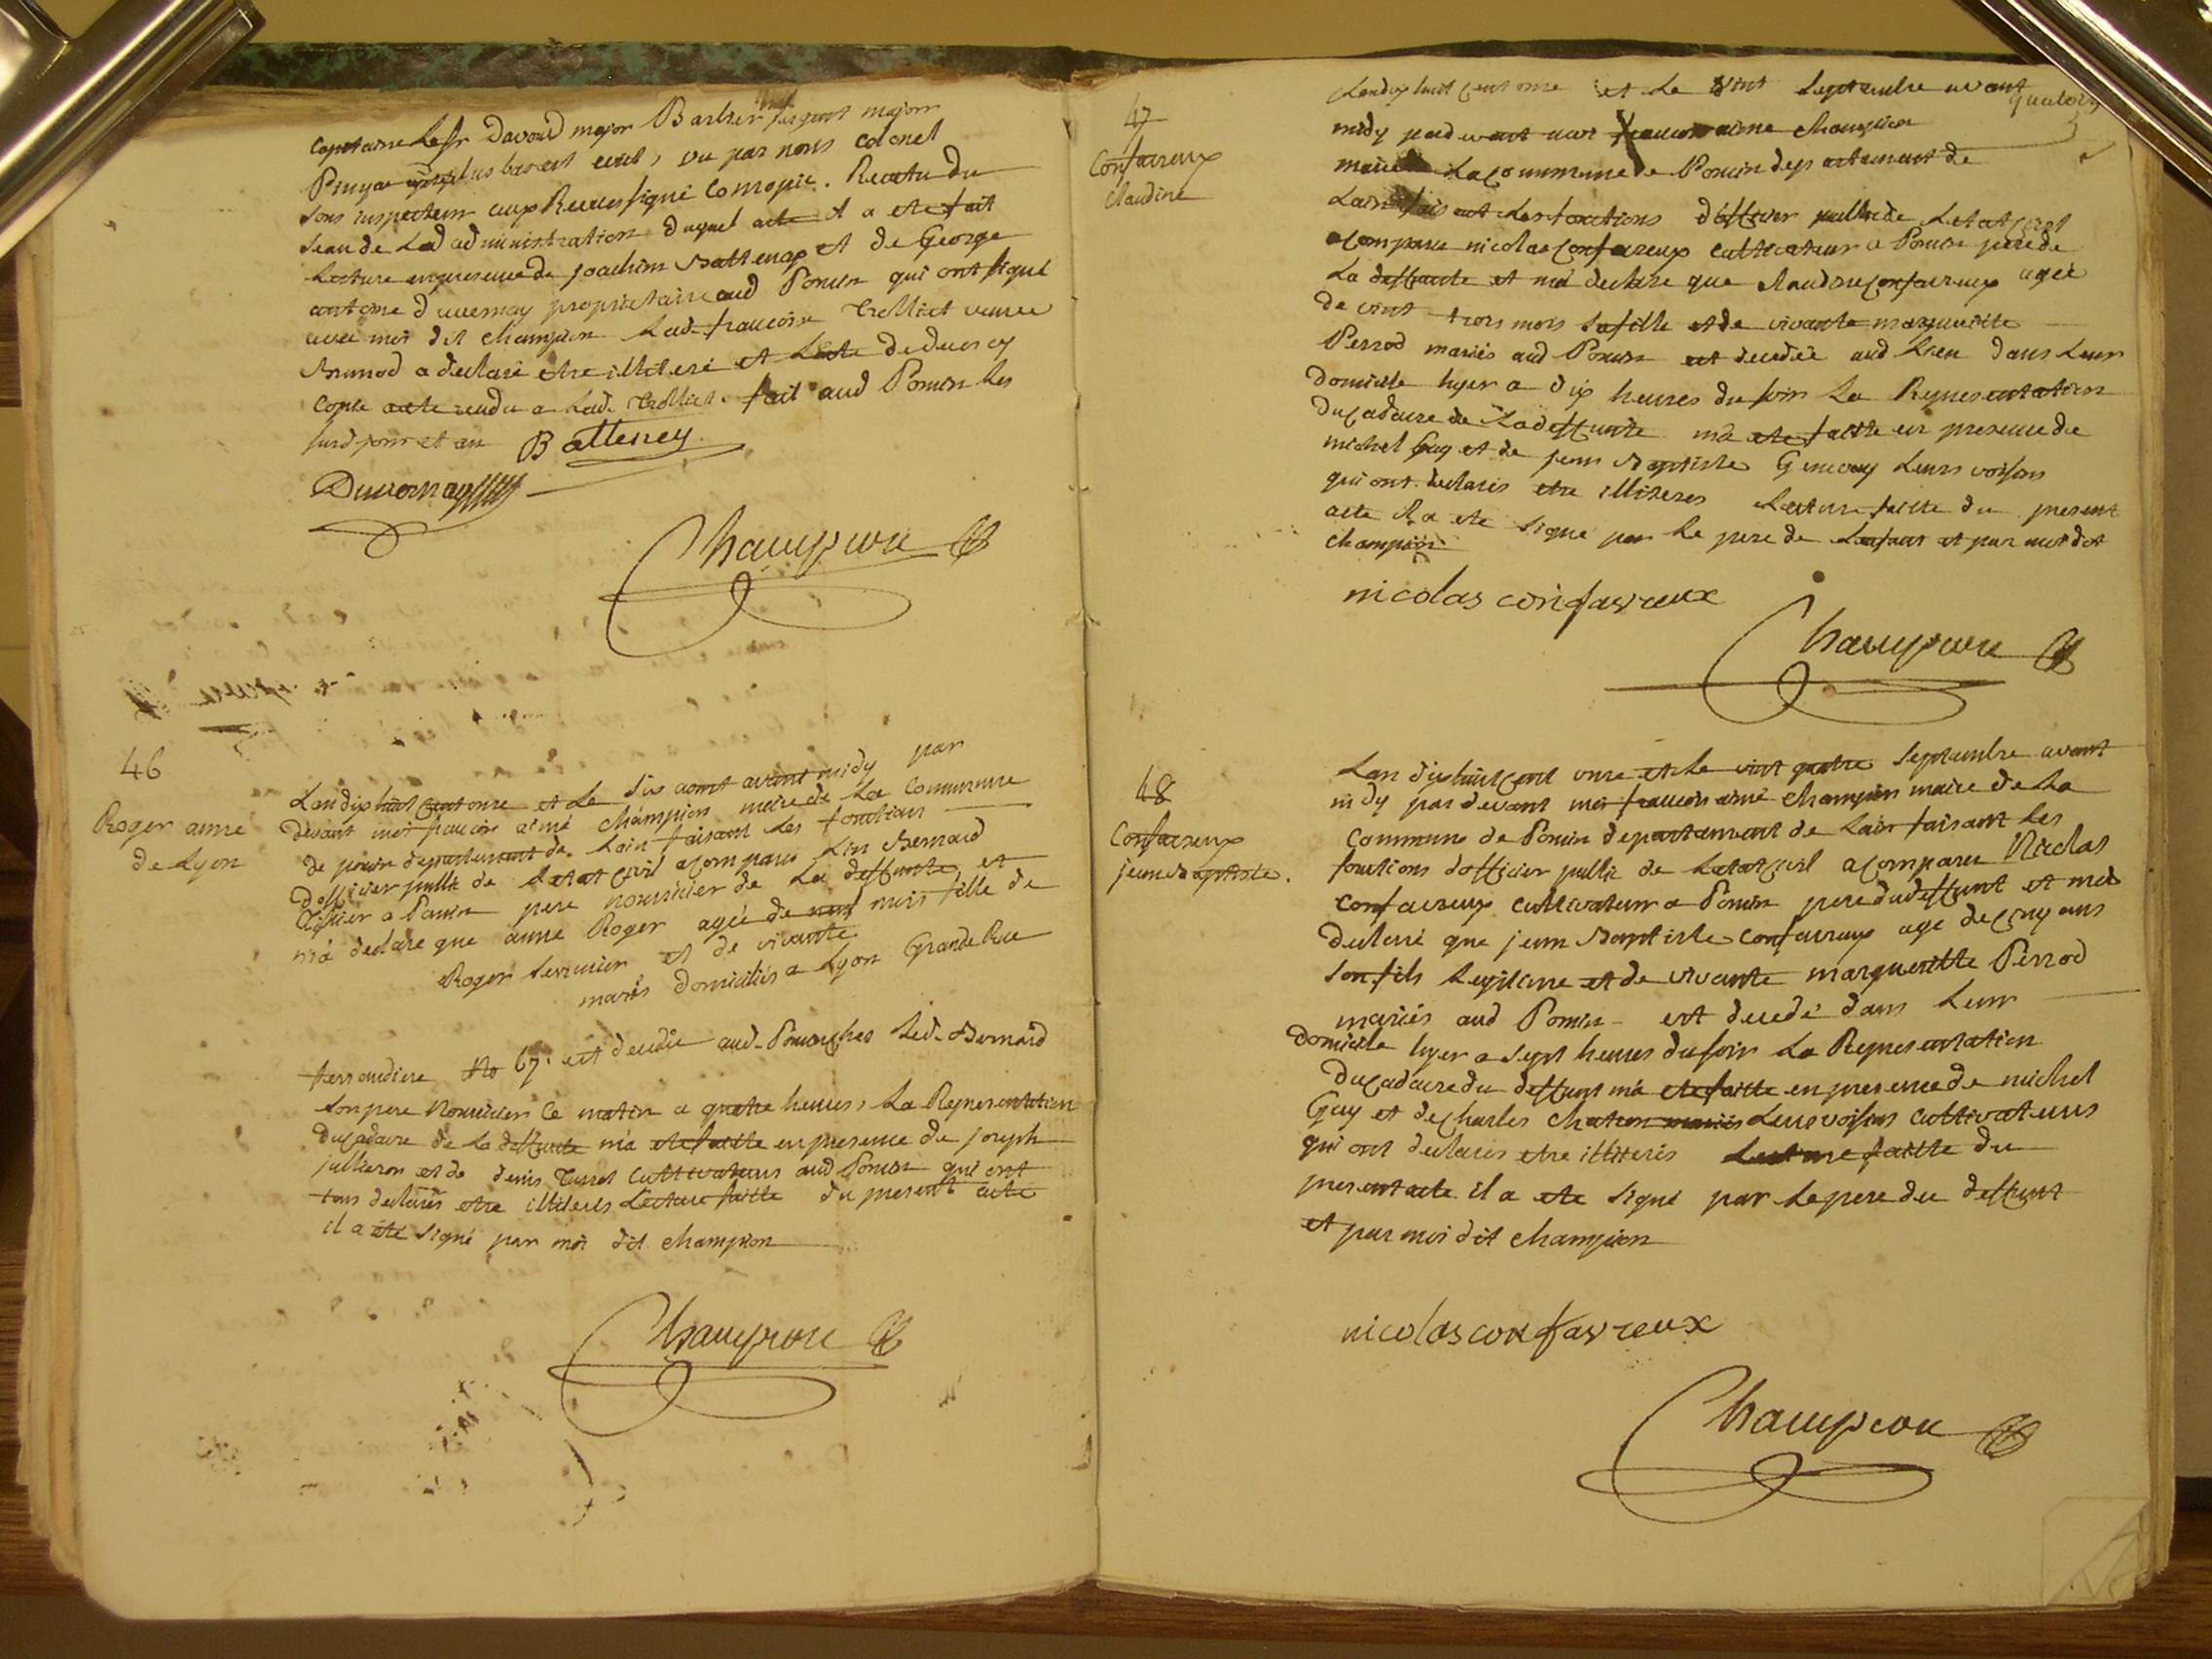 capitaine Le Sr Davoud major Barbier sergent major
plus bas est ecrit, vu par nous colonel
sous inspecteur aux Revues signé Comopic. Recatu du
seau de Lad administration duquel acte il a ete fait
Lecture en presence de joachim Battenay et de George
antoine duvernay proprietaire aud Poncin qui ont signé
avec moi dit champion Lad. francoise trolliet veuve
Brunod a declaré etre illiteré et Lacte de deces cy
acte rendu a Lad. trolliet. fait aud Poncin les
susd jour et an Batteney
Duvernay
Champion
46
Roger anne
de Lyon
Lan dix huit cent onze et le dix aout avant midy par
devant moi francois aimé champion maire de La Commune
de poncin departement de Lain faisant les fonctions
Dofficier public de Letat civil a comparu Bernard
a Poncin pere nourricier de La deffunte et
m'a declaré que anne Roger agée de neuf mois fille de
Roger et de vivante
mariés domiciliés a Lyon Grande Rue
ferrandiere No 67. est decedée aud. Poncin ches Led. Bernard
son pere Nourricier ce matin a quatre heures, La Representation
du cadavre de La deffunte m'a ete faitte en presence de joseph
jullieron et de denis cultivateurs aud Poncin qui ont
tous declarés etre illiterés Lecture faitte du present acte
il a été signé par moi dit champion
Champion
quatorze
47
Confavreux
Claudine
Lan dix huit cent onze et le vint septembre avant
midy par devant moi francois aimé champion
maire de La commune de Poncin departement de
Lain faisant les fonctions d'officier public de Letat civil
a comparu nicolas confavreux cultivateur a Poncin pere de
La deffunte et m'a declaré que claudine confavreux agée
de vint trois mois sa fille et de vivante margueritte
Perrod mariés aud Poncin est decedée aud Lieu dans Leur
domicile hyer a dix heures du soir La Representation
du cadavre de La deffunte m'a ete faitte en presence de
michel Guy et de jean Baptiste Genevay Leurs voisins
qui ont declarés etre illiterés Lecture faitte du present
acte il a ete signé par Le pere de Lenfant et par moi dit
champion
nicolas confavreux
Champion
48
Confavreux
jean Baptiste.
Lan dix huit cent onze et le vint quatre septembre avant
midy par devant moi francois aimé champion maire de La
Commune de Poncin departement de Lain faisant les
fonctions dofficier public de Letat civil a comparu Nicolas
confavreux cultivateur a Poncin pere du deffunt et m'a
declaré que jean Baptiste confavreux agé de cinq ans
son fils legitime et de vivante marguerite Perrod
mariés aud Poncin est decedé dans Leur
domicile hyer a sept heures du soir La Representation
du cadavre du deffunt m'a ete faitte en presence de michel
Guy et de Charles chaton mariés Leurs voisins cultivateurs
qui ont declarés etre illiterés Lecture faitte du
present acte il a ete signé par Le pere du deffunt
et par moi dit champion
nicolas confavreux
Champion